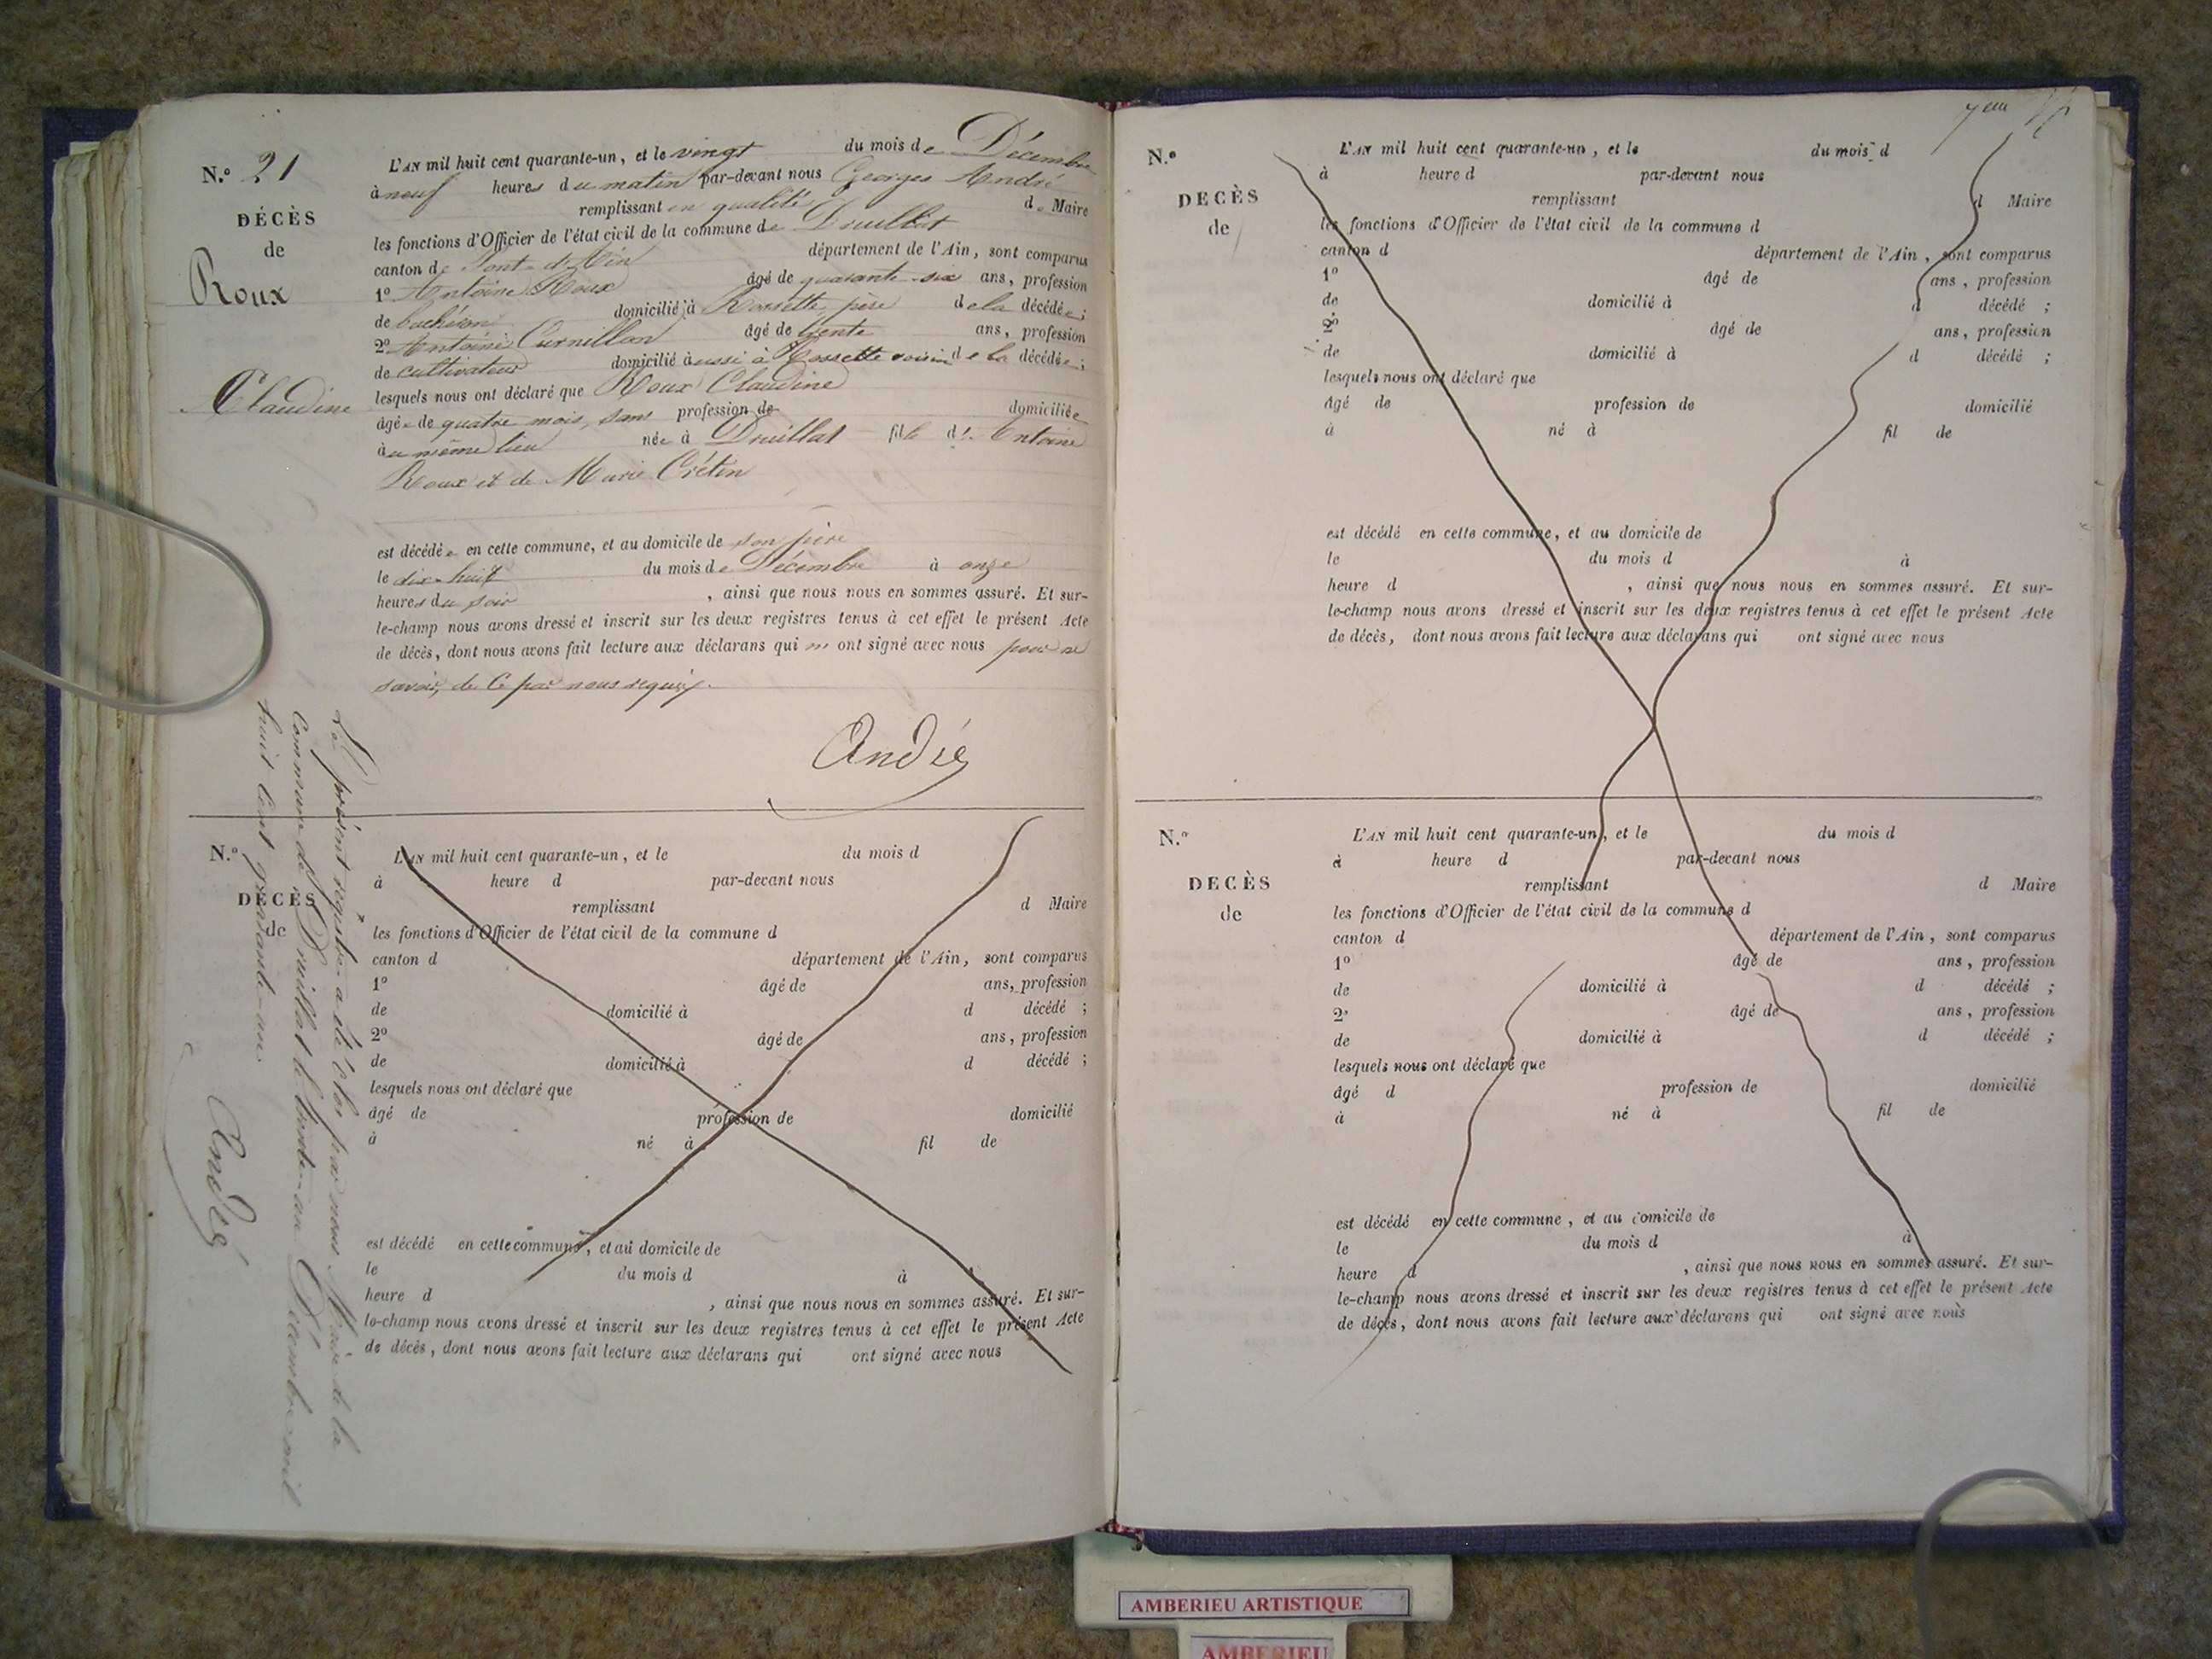 N.° 21
DÉCÈS
de
Roux
Claudine
L'AN mil huit cent quarante-un, et le vingt du mois de Décembre
à neuf heures du matin par-devant nous Georges André
remplissant en qualité de Maire
les fonctions d'Officier de l'état civil de la commune de Druillat
canton de Pont-d'Ain département de l'Ain, sont comparus
1° Antoine Roux âgé de quarante-six ans, profession
de domicilié à Rossette, père de la décédée;
2° Antoine Curnillon âgé de trente ans, profession
de cultivateur domicilié aussi à Rossette voisin de la décédée;
lesquels nous ont déclaré que Roux Claudine
âgée de quatre mois, sans profession de domiciliée
au même lieu née à Druillat fille d'Antoine
Roux et de Marie Crétin
est décédée en cette commune, et au domicile de son père
le dix-huit du mois de Décembre à onze
heures du soir, ainsi que nous nous en sommes assuré. Et sur-
le-champ nous avons dressé et inscrit sur les deux registres tenus à cet effet le présent Acte
de décès, dont nous avons fait lecture aux déclarans qui n'ont signé avec nous pour ne
savoir, de ce par nous requis.
André
Le présent registre a été clos par nous Maire de la
Commune de Druillat le trente-un Décembre mil
huit cent quarante-un.
André
N.°
DÉCÈS
de
L'AN mil huit cent quarante-un, et le du mois d
à heure d par-devant nous
remplissant d Maire
les fonctions d'Officier de l'état civil de la commune d
canton d département de l'Ain, sont comparus
1° âgé de ans, profession
de domicilié à d décédé ;
2° âgé de ans, profession
de domicilié à d décédé ;
lesquels nous ont déclaré que
âgé de profession de domicilié
à né à fil de
est décédé en cette commune, et au domicile de
le du mois d à
heure d , ainsi que nous nous en sommes assuré. Et sur-
le-champ nous avons dressé et inscrit sur les deux registres tenus à cet effet le présent Acte
de décès, dont nous avons fait lecture aux déclarans qui ont signé avec nous
7eme
N.°
DECÈS
de
L'AN mil huit cent quarante-un, et le du mois d
à heure d par-devant nous
remplissant d Maire
les fonctions d'Officier de l'état civil de la commune d
canton d département de l'Ain, sont comparus
1° âgé de ans, profession
de domicilié à d décédé ;
2° âgé de ans, profession
de domicilié à d décédé ;
lesquels nous ont déclaré que
âgé de profession de domicilié
à né à fil de
est décédé en cette commune, et au domicile de
le du mois d à
heure d , ainsi que nous nous en sommes assuré. Et sur-
le-champ nous avons dressé et inscrit sur les deux registres tenus à cet effet le présent Acte
de décès, dont nous avons fait lecture aux déclarans qui ont signé avec nous
N.°
DECÈS
de
L'AN mil huit cent quarante-un, et le du mois d
à heure d par-devant nous
remplissant d Maire
les fonctions d'Officier de l'état civil de la commune d
canton d département de l'Ain, sont comparus
1° âgé de ans, profession
de domicilié à d décédé ;
2° âgé de ans, profession
de domicilié à d décédé ;
lesquels nous ont déclaré que
âgé d profession de domicilié
à né à fil de
est décédé en cette commune, et au domicile de
le du mois d à
heure d , ainsi que nous nous en sommes assuré. Et sur-
le-champ nous avons dressé et inscrit sur les deux registres tenus à cet effet le présent Acte
de décès, dont nous avons fait lecture aux déclarans qui ont signé avec nous
AMBERIEU ARTISTIQUE
AMBERIEU